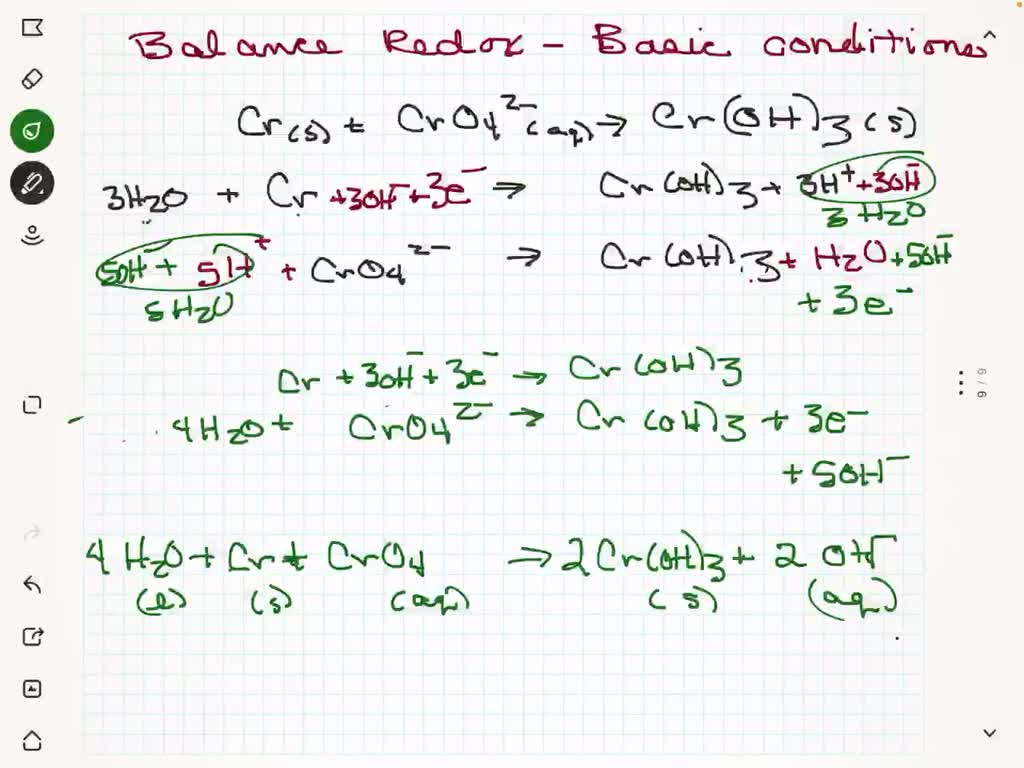 Balance Redox - Basic conditions
Cr(s) + CrO4 2- (aq) → Cr(OH)3(s)
3H2O + Cr + 3OH- + 3e- → Cr(OH)3 + 3H+ + 3OH-
3H2O
5OH- + 5H+ + CrO4 2- → Cr(OH)3 + H2O + 5OH-
5H2O + 3e-
Cr + 3OH- + 3e- → Cr(OH)3
4H2O + CrO4 2- → Cr(OH)3 + 3e-
+ 5OH-
4H2O + Cr + CrO4 → 2Cr(OH)3 + 2OH-
(l) (s) (aq) (s) (aq)
6/6